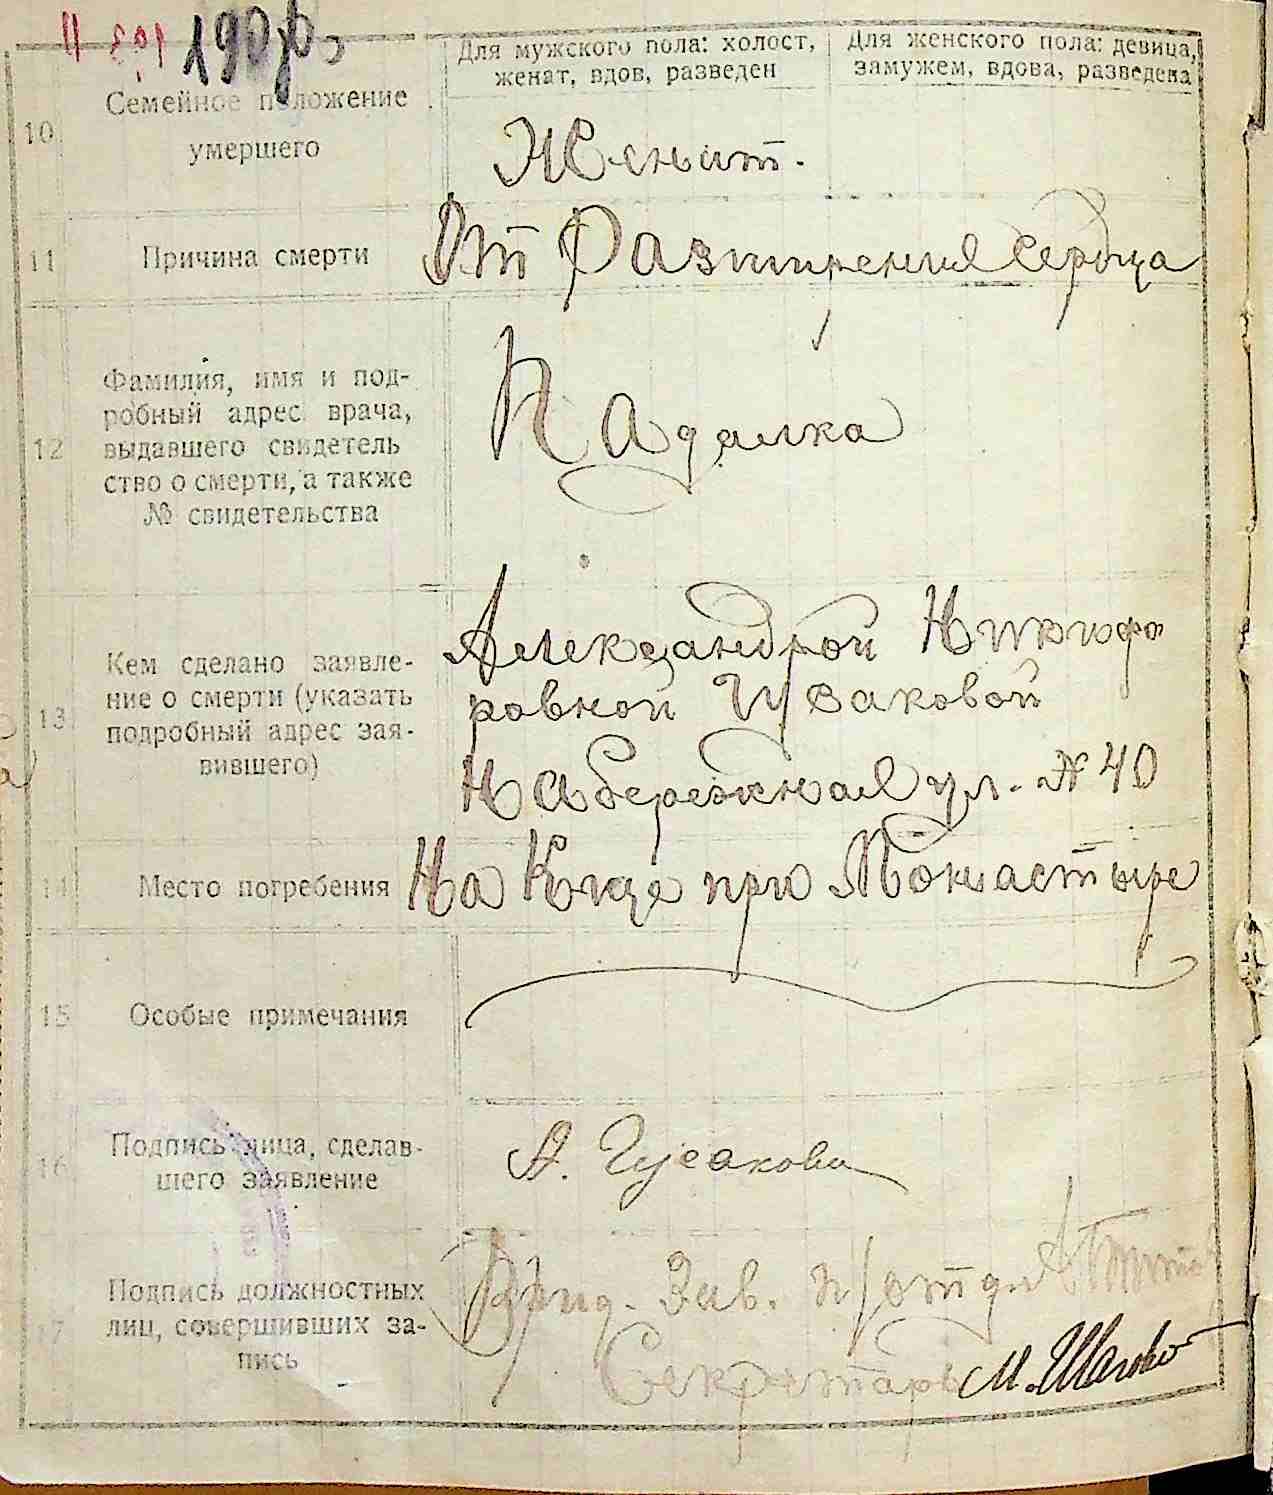 190 об
Для мужского пола: холост, женат, вдов, разведен
Для женского пола: девица, замужем, вдова, разведена
10
Семейное положение
умершего
Женат.
11
Причина смерти
От Разширения сердца
12
Фамилия, имя и под-
робный адрес врача,
выдавшего свидетель
ство о смерти, а также
№ свидетельства
Падалка
13
Кем сделано заявле-
ние о смерти (указать
подробный адрес зая-
вившего)
Александрой Никифо
ровной
Набережная ул. № 40
14
Место погребения
На Кице при Монастыре
15
Особые примечания
16
Подпись лица, сделав-
шего заявление
А. Гусакова
17
Подпись должностных
лиц, совершивших за-
пись
Врид. Зав. п/отдел
Секретарь М.